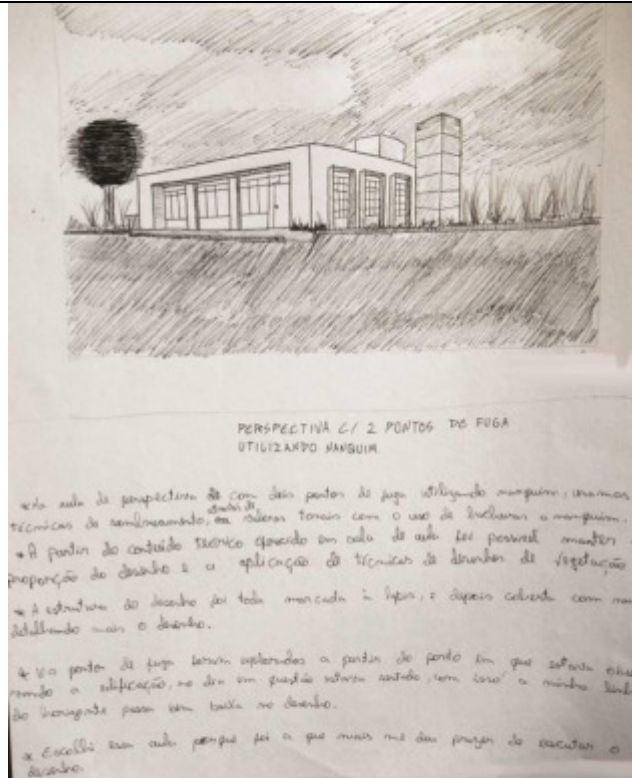 PERSPECTIVA C/ 2 PONTOS DE FUGA
UTILIZANDO NANQUIM
aula de perspectiva com dois pontos de fuga utilizando nanquim, usamos
técnicas de sombreamento, através de valores tonais com o uso de hachuras a nanquim.
* A partir do conteúdo teórico oferecido em sala de aula foi possível manter
proporção do desenho e a aplicação de técnicas de desenhos de vegetação
* A estrutura do desenho foi toda marcada à lápis, e depois coberta com
detalhando mais o desenho.
* pontos de fuga foram explorados a partir do ponto em que estava
a edificação, no dia em questão estava sentado, com isso a minha
do horizonte passa bem baixa no desenho.
* Escolhi essa aula porque foi a que mais me deu prazer de executar o
desenho.